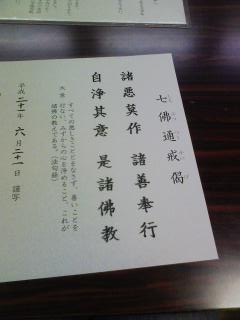 七佛通戒偈
諸悪莫作 諸善奉行
自浄其意 是諸佛教
大意 すべての悪しきことをなさず、善いことを
行ない、みずからの心を浄めること、これが
諸佛の教えである。(法句経)
平成二十一年 六月二十一日 謹写